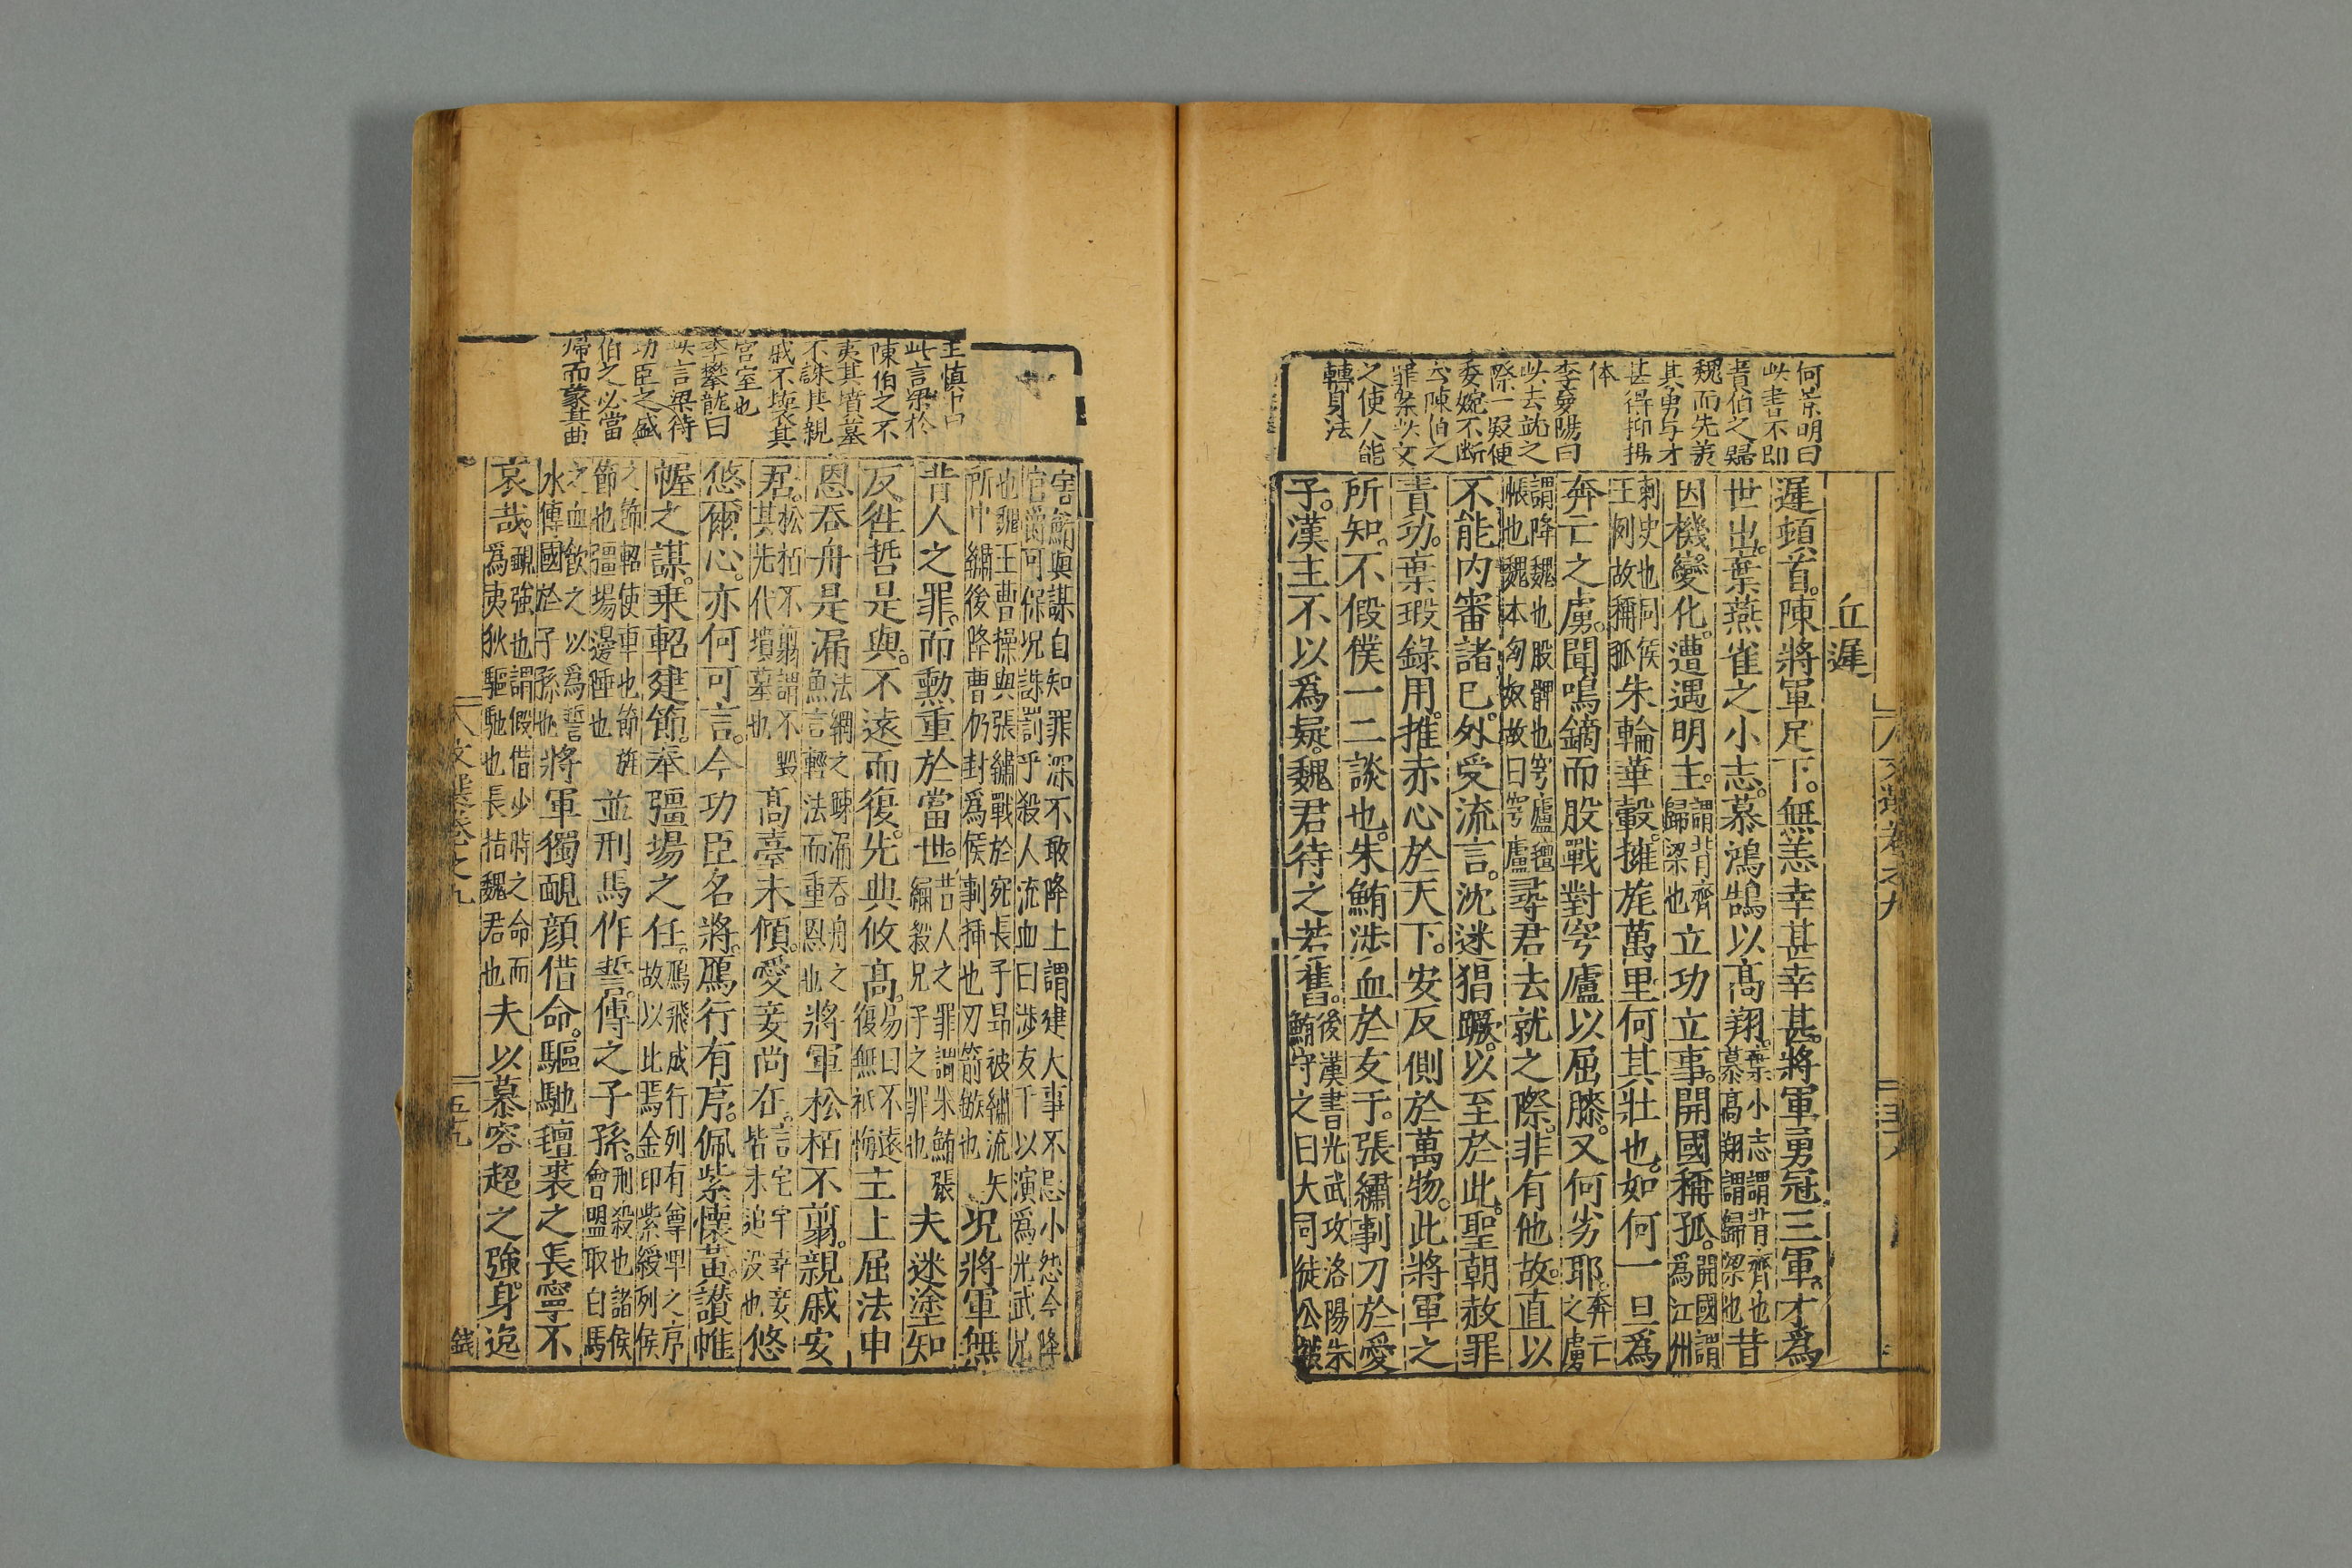 何景明曰
此書不即
責伯之歸
魏而先羨
其勇与才
甚得抑揚
体
李夢陽曰
此去就之
際一段便
委婉不断
云陳伯之
罪案此文
之使人能
轉身法
丘遲
遲頓首陳將軍足下無恙幸甚幸甚將軍勇冠三軍才為
世出棄燕雀之小志慕鴻鵠以高翔棄小志謂背齊也慕高翔謂歸梁也昔
因機變化遭遇明主謂背齊歸梁也立功立事開國稱孤開國謂為江州
刺史也同侯王例故稱孤朱輪華轂擁旄萬里何其壯也如何一旦為
奔亡之虜聞鳴鏑而股戰對穹廬以屈膝又何劣耶奔亡之虜
謂降魏也股髀也穹廬氊帳也魏本匈奴故曰穹廬尋君去就之際非有他故直以
不能内審諸已外受流言沈迷猖蹶以至於此聖朝赦罪
責功棄瑕錄用推赤心於天下安反側於萬物此將軍之
所知不假僕一二談也朱鮪涉血於友于張繡剚刀於愛
子漢主不以為疑魏君待之若舊後漢書光武攻洛陽朱鮪守之曰大司徒公被
王慎中曰
此言梁於
陳伯之不
夷其墳墓
不誅其親
戚不壞其
宮室也
李攀龍曰
此言梁待
功臣之盛
伯之必當
歸而蒙其曲
害鮪與謀自知罪深不敢降上謂建大事不忌小怨今降官爵可保况誅罰乎殺人流血曰涉友于以演為光武兄
也魏王曹操與張繡戰於宛長子昂被繡流矢所中繡後降曹仍封為侯剚揷也刃箭鏃也况將軍無
昔人之罪而勳重於當世昔人之罪謂朱鮪張繡殺兄子之罪也夫迷塗知
反徃哲是與不遠而復先典攸高易曰不遠復無衹悔主上屈法申
恩吞舟是漏法網之踈漏吞舟之魚言輕法而重恩也將軍松栢不翦親戚安
君松栢不翦謂不毀其先代墳墓也高臺未傾愛妾尚在言宅宇幸妾皆未追没也悠
悠爾心亦何可言今功臣名將鴈行有序佩紫懷黃讃帷
幄之謀乗軺建節奉疆場之任鴈飛成行列有尊卑之序故以此焉金印紫綬列侯
之飾軺使車也節旄節也疆場邊陲也並刑馬作誓傳之子孫刑殺也諸侯會盟取白馬
之血飲之以為誓水傳國於子孫也將軍獨靦顔借命驅馳氊裘之長寧不
哀哉靦強也謂假借少時之命而為夷狄驅馳也長指魏君也夫以慕容超之強身迯
文選卷之九
五十九
錢